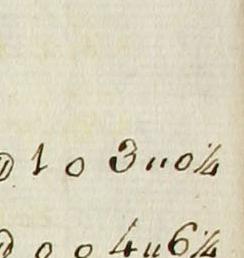 1 0 3"0¼
0 0 4"6¼